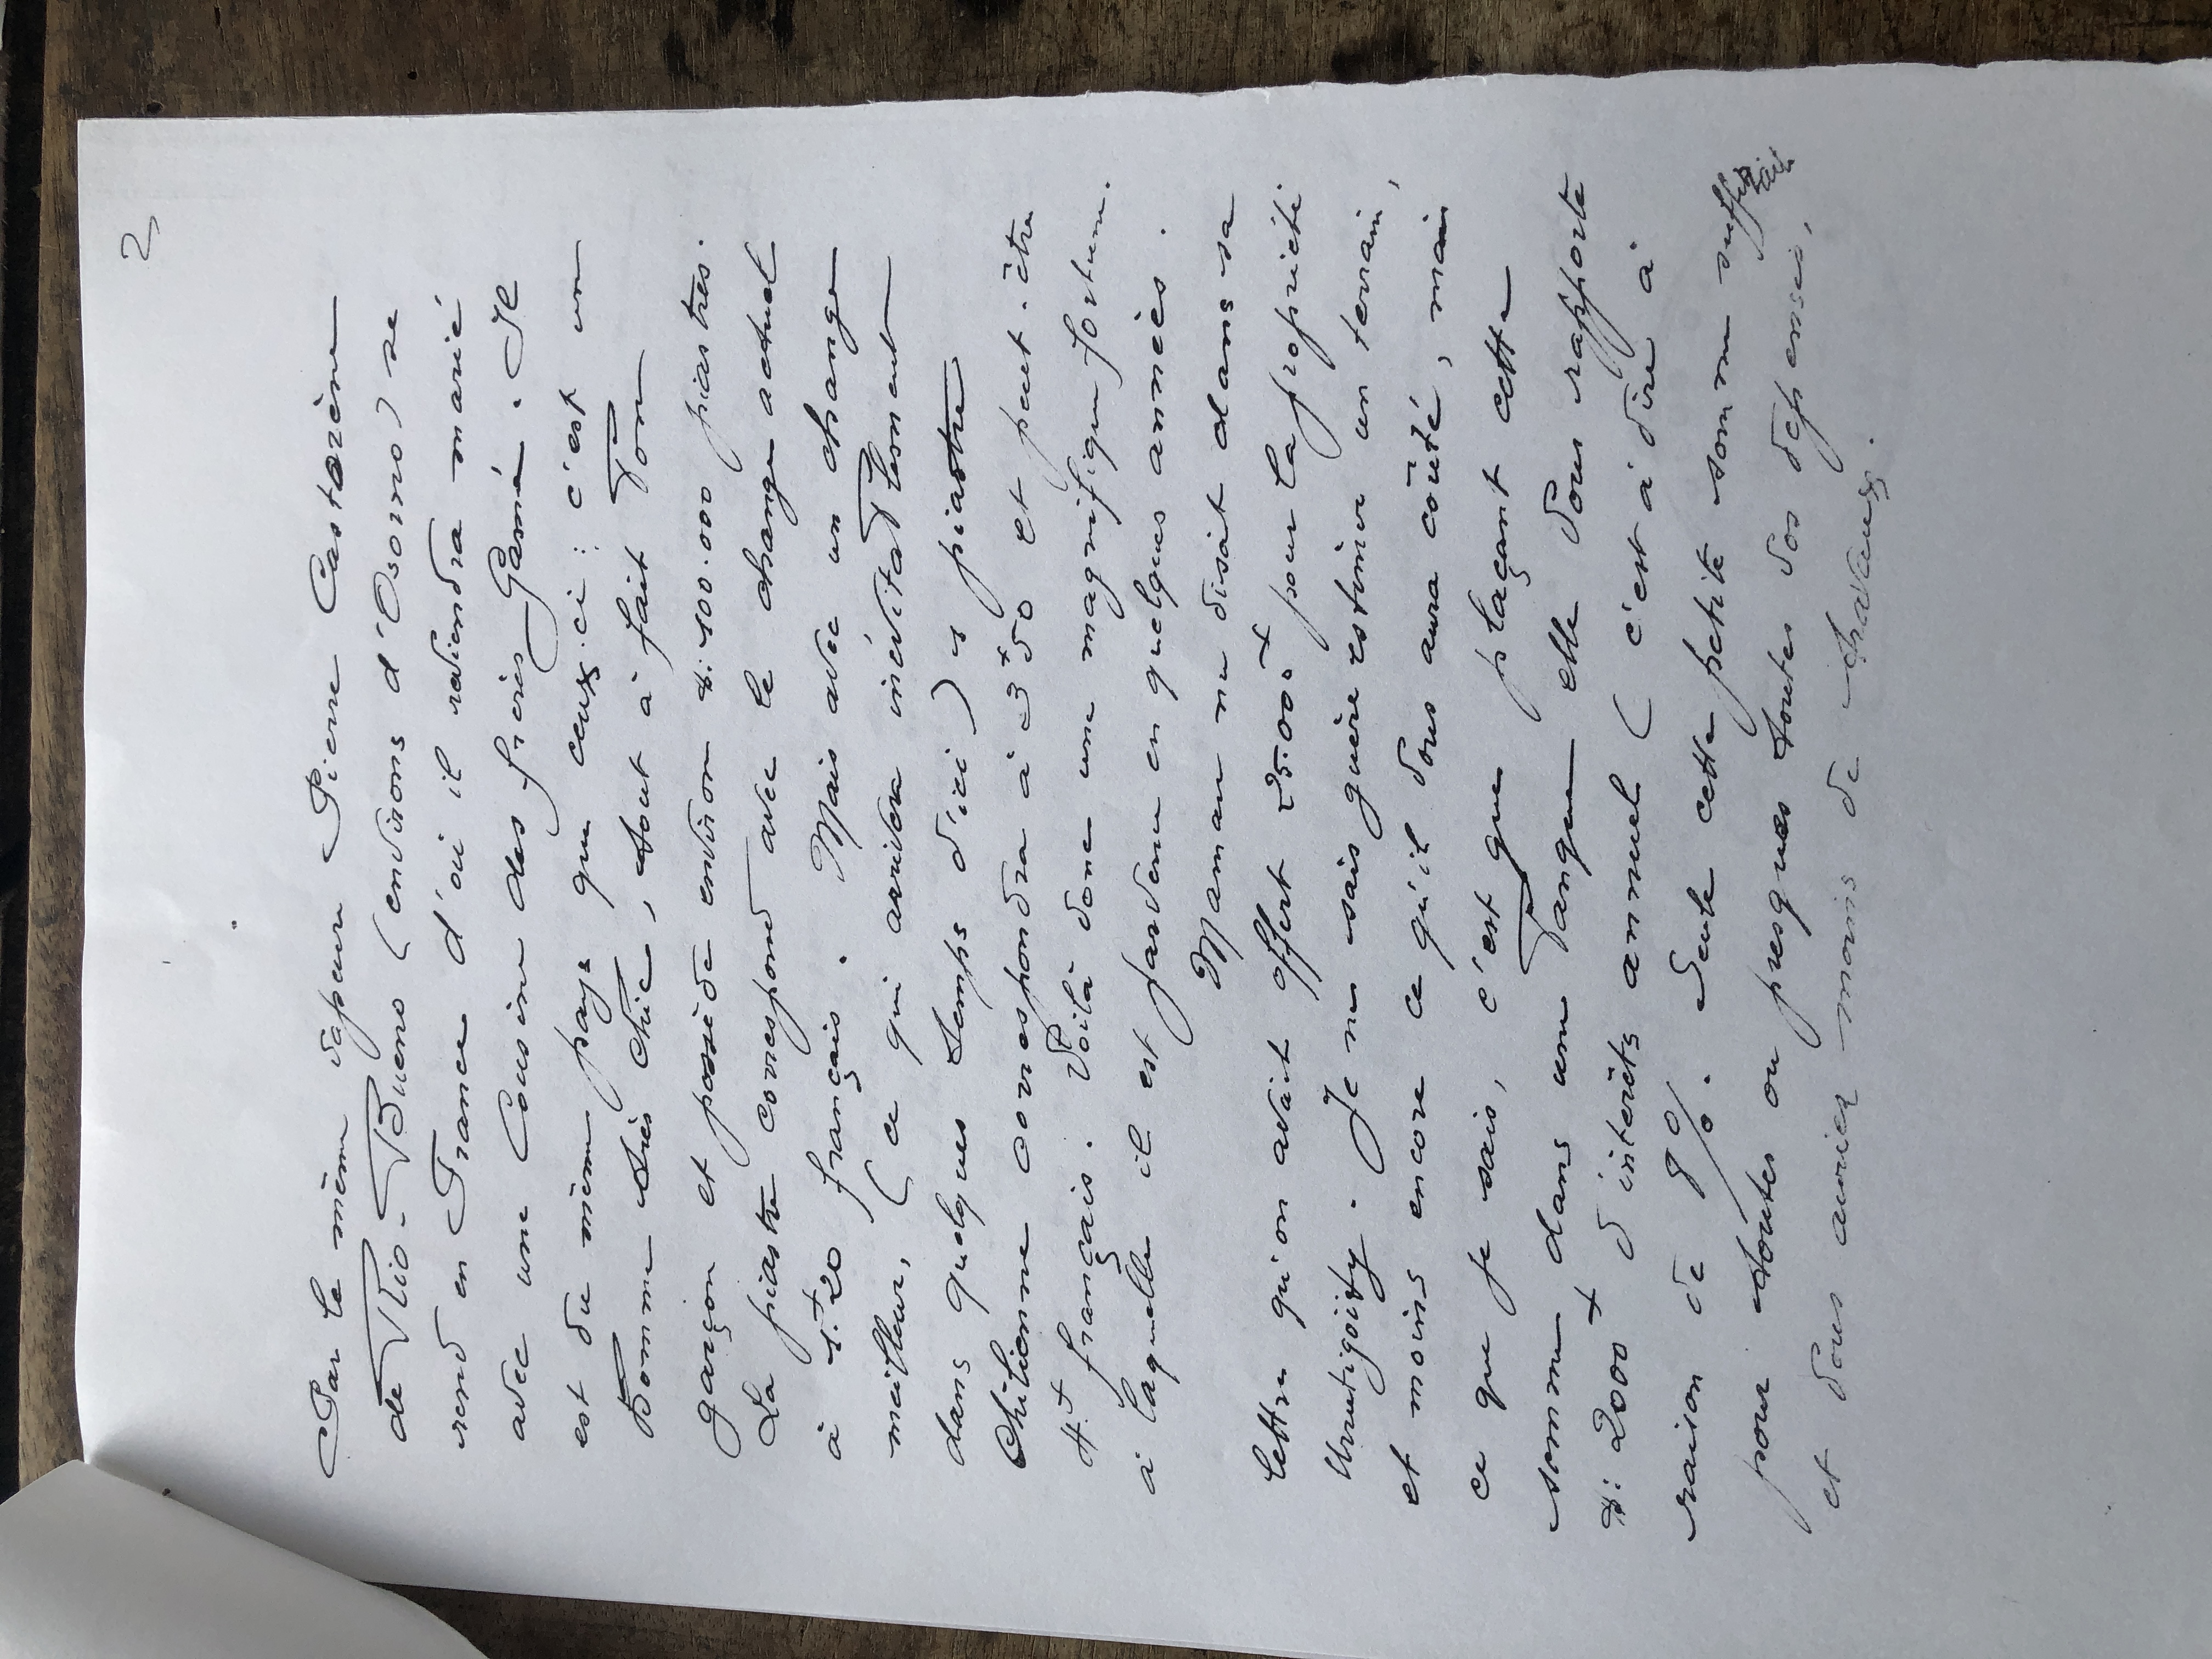 2
Par le même vapeur Pierre Castarène
de Rio-Bueno (environs d'Osorno) se
rend en France d'où il reviendra marié
avec une Cousine des frères Gamé. Il
est du même pays que ceux-ci : c'est un
homme très chic, tout à fait bon
garçon et possède environ $: 100.000 piastres.
La piastre correspond avec le change actuel
à 1.f 20 français. Mais avec un change
meilleur, (ce qui arrivera inévitablement
dans quelques temps d'ici) 1 piastre
Chilienne correspondra à 3f 50 et peut-être
4.f français. Voilà donc une magnifique fortune.
à laquelle il est parvenu en quelques années.
Maman me disait dans sa
lettre qu'on avait offert 25.000 f pour la propriété
. Je ne sais guère estimer un terrain,
et moins encore ce qu'il vous aura coûté, mais
ce que je sais, c'est que plaçant cette
somme dans une Banque elle vous rapporte
$: 2000 f d'intérêts annuel (c'est à dire à
raison de 8%. Seule cette petite somme suffirait
pour toutes ou presques toutes vos dépenses,
et vous auriez moins de travaux.